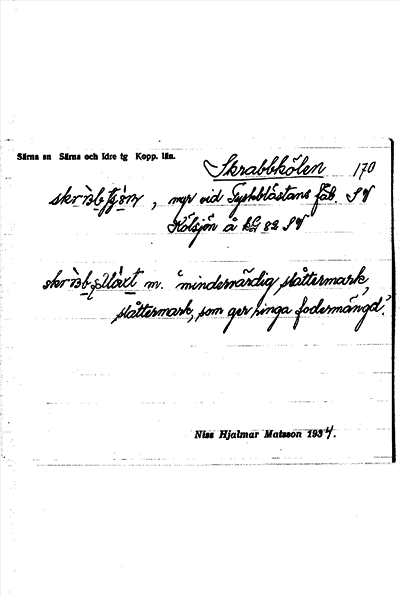 Särna sn Särna och Idre tg Kopp. län.
Skrabbkölen 170
, myr vid Tyskblåstans fäb. SV
Kölsjön å kbl 82 SV
m. "mindervärdig slåttermark,
slåttermark, som ger ringa fodermängd".
Niss Hjalmar Matsson 1934.